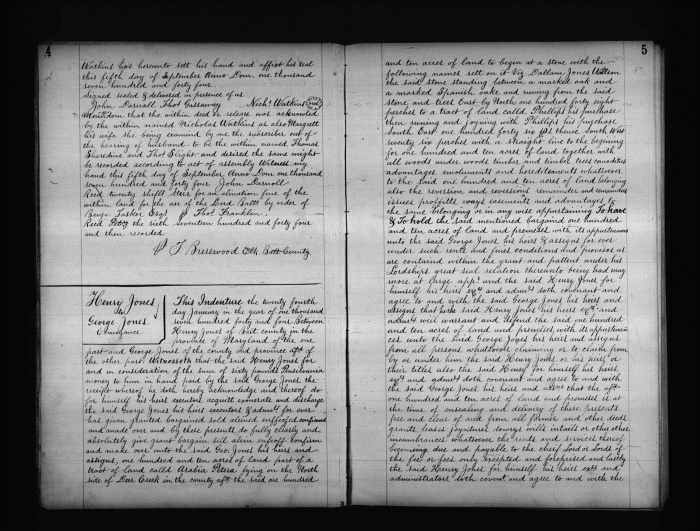 4
Watkins hath hereunto sett his hand and affixt his seal
this fifth day of September Anno Dom one thousand
seven hundred and forty four.
Signed sealed & delivered in presence of us
John Darnall Thos Gassaway Nichs Watkins Seal
Memdndom that the within deed or release was acknowled
by the within named Nicholas Watkins as also Margrett
his wife she being examind by me the subscriber out of
the hearing of husband to be the within named Thomas
Sheredine and Thos Slight and desired the same might
be recorded according to act of assembly Witness my
hand this fifth day of September Anno Dom one thousand
seven hundred and forty four John Darnall
Recd twenty shillt sters for an alination fine of the
within land for the use of the Lord Baltr by order of
Benja Tasker Esqr Thos Franklin
Recd Septr the sixth seventeen hundred and forty four
and then recorded
T Brerewood Clk Balt County
Henry Jones
to
George Jones
Conveyance
This Indenture the twenty fourth
day January in the year of one thousand
seven hundred forty and four Between
Henry Jones of Balt county in the
province of Maryland of the one
part and George Jones of the county and province afsd of
the other part Witnesseth that the said Henry Jones for
and in consideration of the sum of sixty pounds Pensilvania
money to him in hand paid by the said George Jones the
receipt whereof he doth hereby acknowledge and thereof do
for himself his heirs executors acquitt exonerate and discharge
the said George Jones his heirs executors & admrs for ever
has given granted bargained sold aliened enfeoffed confirmed
and made over and by these presents do fully clearly and
absolutely give grant bargain sell alien enfeoff confirm
and make over unto the said Geo Jones his heirs and
assigns, one hundred and ten acres of land part of a
tract of land calld Arabia Petrea lying on the North
side of Deer Creek in the county afsd the said one hundred
5
and ten acres of land to begin at a stone with the
following names sett on it Viz Dallam Jones Wilson
the said stone standing between a marked oak and
a marked Spanish oake and runing from the said
stone and trees East by North one hundred forty eight
perches to a tract of land calld Phillips his purchase
then runing and joyning with Phillips his purchase
South East one hundred forty six ps thence South West
seventy six perches with a straight line to the begening
for one hundred and ten acres of land together with
all woods under woods timber and timber trees comodities
advantages emoluments and hereditements whatsoever
to the said one hundred and ten acres of land belonging
also the reversion and reversions remainder and remainders
issues proffitts ways easements and advantages to
the same belonging or in any wise appurtaining To have
& To hold the said mentioned bargaind one hundred
and ten acres of land and premises with its appurtenances
unto the said George Jones his heirs & assigns for ever
under such rents and fines conditions and provisos as
are contained within the grant and pattent under his
Lordships great seal relation thereunto being had may
more at large appr and the said Henry Jones for
himself his heirs exrs and admrs doth covenant and
agree to and with the said George Jones his heirs and
assigns that he the said Henry Jones his heirs exrs and
admrs will warrant and defend the said one hundred
and ten acres of land and premises with its appurtenan
ces unto the said George Jones his heirs and assigns
from all persons whatsoever claiming or to claim from
by or under him the said Henry Jones or his heirs or
their titles also the said Henry for himself his heirs
exrs and admrs doth covenant and agree to and with
the said George Jones his heirs and that the afsd
one hundred and ten acres of land and premises is at
the time of ensealing and delivery of these presents
free and clear of and from all former and other deeds
grants leases joyntures dowrys wills intails or other other
incumbrances whatsoever the rents and services thereof
becoming due and payable to the chief Lord or Lords of
the fee or fees only excepted and foreprised and lastly
the said Henry Jones for himself his heirs exrs and
administrators doth covent and agree to and with the